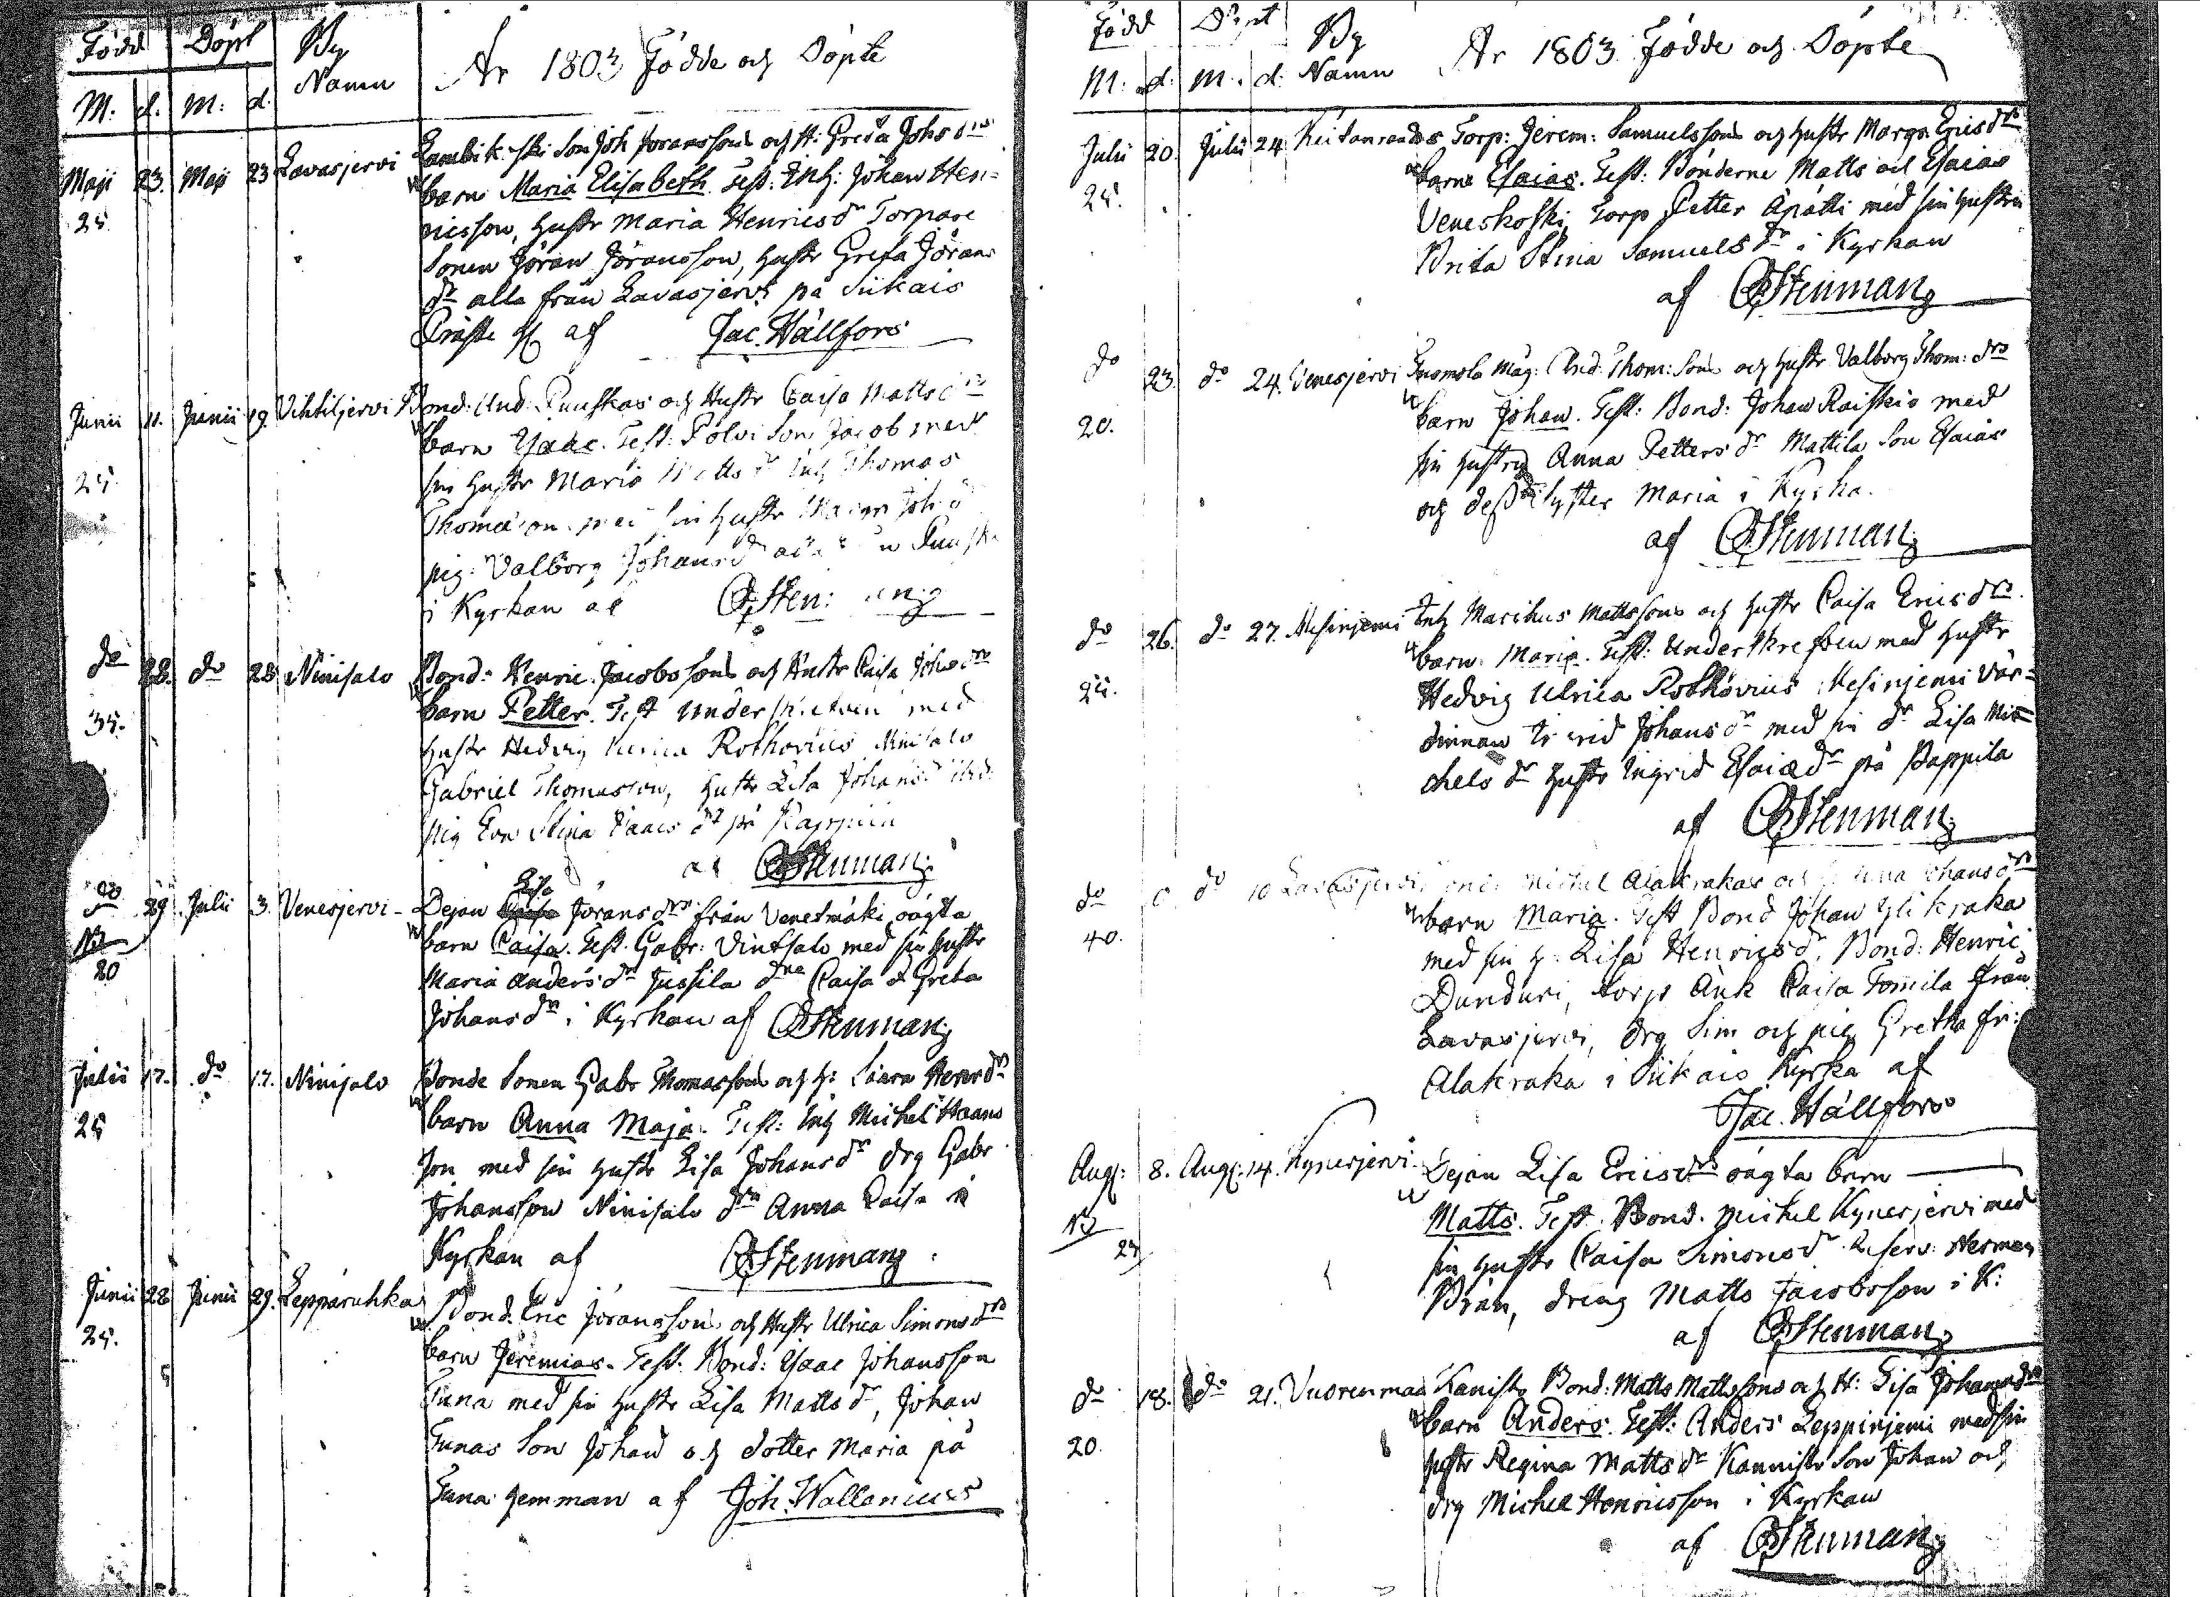 Född Döpt By
M: d. M: d. Namn
År 1803 Födde och Döpte
Maji 23. Maji 23 Lavasjervi
25.
Son Joh Joransons och H: Greta Johs drs
barn Maria Elisabeth. Test: Inh: Johan Hen=
ricsson, Hustr Maria Henricsdr Torpare
Sonen Jöran Jöransson, hustr Greta Jörans
dr alla från Lavasjervi på Siikais
af Jac. Hällfors
Junii 11. Junii 19. Vihtiljervi
25.
Bond: And. Puuskas och Hustr Caisa Matts drs
barn Isaac. Test: Polvi Son Jacob med
sin hustr Maria Matts dr Inh Thomas
sin hustr
pig: Valborg Johansd
i Kyrkan af
do 28. do 28 Ninisalo
35.
Bond: Henric Jacobssons och Hustr Caisa Johs drs
barn Petter. Test Underskrefven med
hustr Hedvig Ulrica Rothovius Ninisalo
Gabriel Thomasson, hustr Lisa Johansd
pig Eva Stina Isaacs dr på
af Stenman
do 29 Julii 3. Venesjervi
NB
20
Lisa
Dejan Jörans drs från Venetmäki oägta
barn Caisa. Test. Gabr: Vintsalo med sin hustr
Maria Anders dr Jussila dra Caisa & Greta
Johans dr i Kyrkan af Stenman
Julii 17. do 17. Ninisalo
25
Bonde Sonen Gabr Thomassons och h: Saara Henr drs
barn Anna Maja. Test: Inh Michel Haans
son med sin hustr Lisa Johans dr drg Gabr
Johansson Ninisalo dra Anna Caisa i
Kyrkan af Stenman
Junii 28 Junii 29. Lepparuhka
25.
Bond. Eric Joransons och Hustr Ulrica Simons drs
barn Jeremias. Test. Bond: Isaac Johansson
Tuna med sin hustr Lisa Matts dr, Johan
Tunas Son Johan och dotter Maria på
Tuna hemman af Joh. Wallenius
Född Döpt By
M: d: M: d: Namn
År 1803 Födde och Döpte
Julii 20. Julii 24 Keitanrandas
25.
Torp: Jerem: Samuelssons och hustr Margr. Erics drs
barn Esaias. Test: Bönderne Matts och Esaias
Veneskoski, Torp Petter Äpätti med sin hustru
Brita Stina Samuels dr i Kyrkan
af Stenman
do 23. do 24. Venesjervi
20.
Tuomola Måg: And: Thom: Sons och hustr Valborg Thom: drs
barn Johan. Test: Bond: Johan Raiskio med
sin hustru Anna Petters dr Mattila Son Esaias
och dess syster Maria i Kyrka.
af Stenman
do 26. do 27. Mesinjemi
Inh Marikus Mattssons och hustr Caisa Erics drs
barn Maria. Test: Underskrefven med hustr
Hedvig Ulrica Rothovius Mesinjemi Vär=
dinnan Johans dr med sin dr Lisa Mi=
chels dr hustr Ingrid Esaiæ dr på Pappila
af Stenman
do do 10 Lavasjervi
40.
Michel Alakrakas och
barn Maria. Test Bond Johan Ylikraka
med sin h: Lisa Henricsdr, Bond: Henric
Dunduri, torp Änk Caisa Tomila från
Lavasjervi, drg Sim och pig Gretha fr:
Alakraka i Siikais Kyrka af
Jac. Hällfors
Aug: 8. Aug: 14. Kynesjervi
NB
Dejan Lisa Erics drs oägta barn
Matts. Test. Bond. Michel Kynesjervi med
sin hustr Caisa Simons dr. Reserv: Herman
Brán, dreng Matts Jacobsson i K:
af Stenman
do 18. do 21. Vuorenmaa
20.
Kanisto Bond: Matts Mattssons och H: Lisa Johans drs
barn Anders. Test: Anders Leppinjemi med sin
hustr Regina Matts dr Kannisto Son Johan och
drg Michel Henricsson i Kyrkan
af Stenman